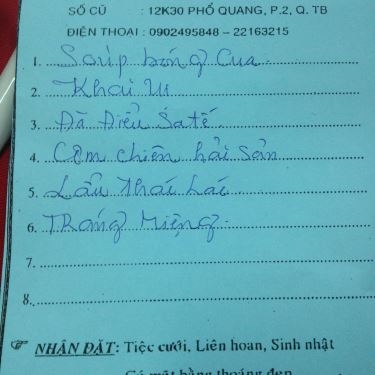 SỐ CŨ : 12K30 PHỔ QUANG, P.2, Q. TB
ĐIỆN THOẠI : 0902495848 – 22163215
1. Soup bóng Cua
2. Khai Vị
3. Đà Điểu Sa tế
4. Cơm chiên hải sản
5. Lẩu Thái Lác
6. TRáng Miệng.
7.
8.
☞ NHẬN ĐẶT: Tiệc cưới, Liên hoan, Sinh nhật
Có mặt bằng thoáng đẹp